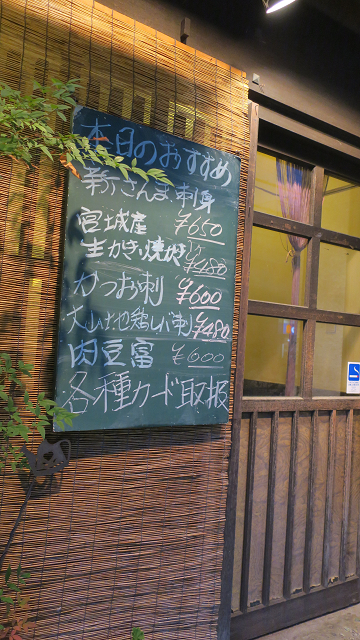 本日のおすすめ
新さんま刺身
宮城産 ¥650
生かき焼 ¥480
かつお刺 ¥600
大山地鶏レバ刺 ¥480
肉豆冨 ¥600
各種カード取扱